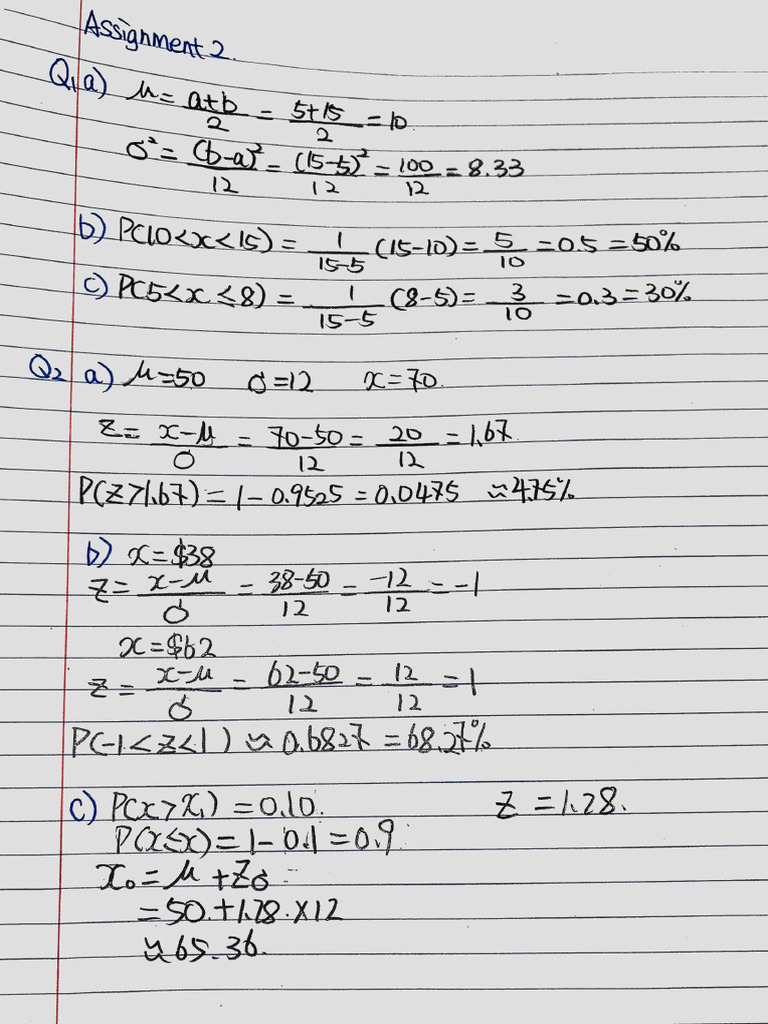 Assignment 2.
Q1 a) μ = a+b/2 = 5+15/2 = 10
σ² = (b-a)²/12 = (15-5)²/12 = 100/12 = 8.33
b) P(10<x<15) = 1/15-5 (15-10) = 5/10 = 0.5 = 50%
c) P(5<x≤8) = 1/15-5 (8-5) = 3/10 = 0.3 = 30%
Q2 a) μ=50 σ=12 x=70.
z = x-μ/σ = 70-50/12 = 20/12 = 1.67.
P(z>1.67) = 1-0.9525 = 0.0475 ≈ 4.75%
b) x=$38
z = x-μ/σ = 38-50/12 = -12/12 = -1
x=$62
z = x-μ/σ = 62-50/12 = 12/12 = 1
P(-1<z<1) ≈ 0.6827 = 68.27%
c) P(x>x₁) = 0.10. z = 1.28.
P(x≤x) = 1-0.1 = 0.9.
x₀ = μ + zσ =
= 50.+1.28.×12
≈ 65.36.